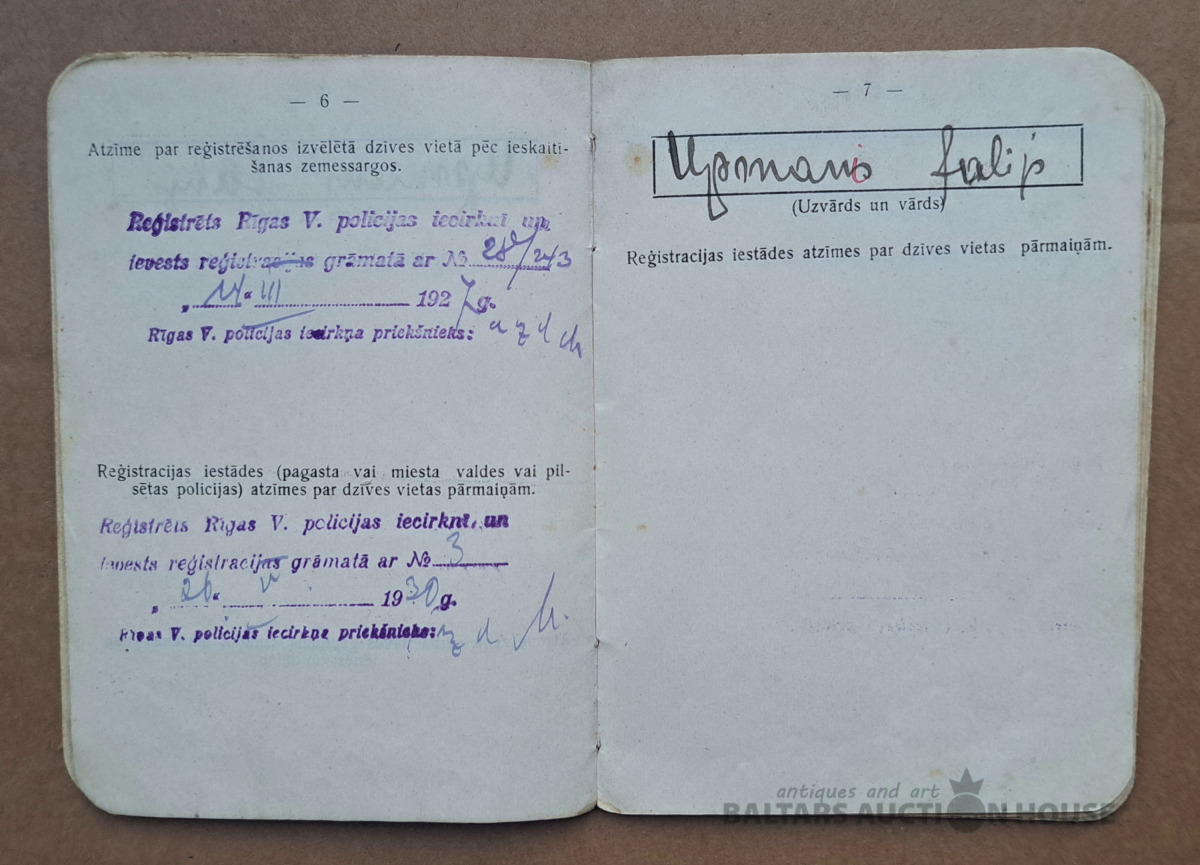 — 6 —
Atzīme par reģistrēšanos izvēlētā dzīves vietā pēc ieskaiti-
šanas zemessargos.
Reģistrēts Rīgas V. policijas iecirknī un
ievests reģistracijas grāmatā ar № 28/243
„ 14 “ III 1927 g.
Rīgas V. policijas iecirkņa priekšnieks:
Reģistracijas iestādes (pagasta vai miesta valdes vai pil-
sētas policijas) atzīmes par dzīves vietas pārmaiņām.
Reģistrēts Rīgas V. policijas iecirknī un
ievests reģistracijas grāmatā ar № 3
„ 26 “ V 1930 g.
Rīgas V. policijas iecirkņa priekšnieks:
— 7 —
Upmanis
(Uzvārds un vārds)
Reģistracijas iestādes atzīmes par dzīves vietas pārmaiņām.
antiques and art
BALTARS AUCTION HOUSE